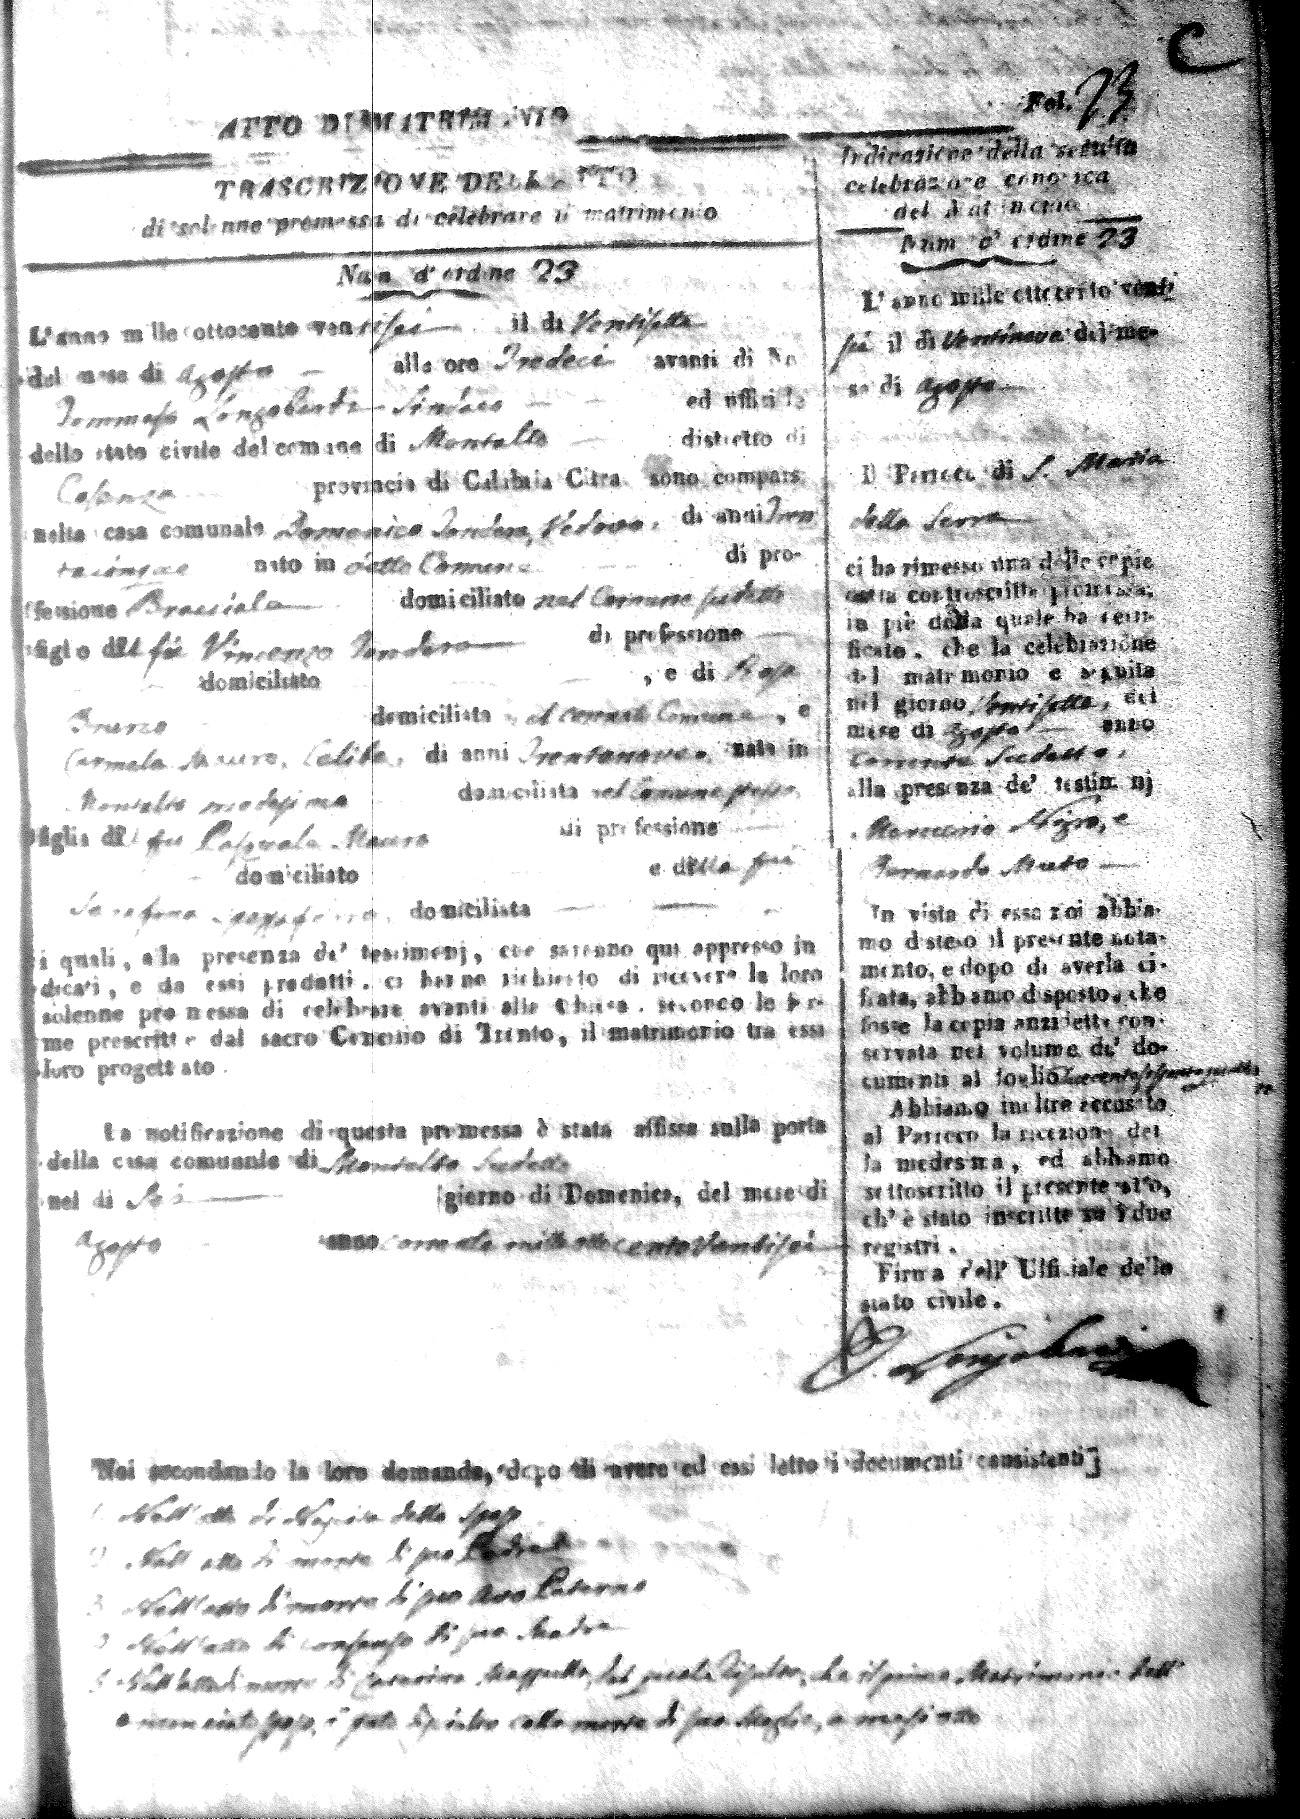 C
Fol. 23
ATTO DI MATRIMONIO
TRASCRIZIONE DELL'ATTO
di solenne promessa di celebrare il matrimonio
Num. d'ordine 23
L'anno mille ottocento ventisei il di Ventisette
del mese di Agosto alle ore Tredeci avanti di Noi
Tommaso Longobardi Sindaco ed uffiziale
dello stato civile del comune di Montalto distretto di
Cosenza provincia di Calabria Citra sono comparsi
nella casa comunale Domenico Vedovo, di anni Tren
nato in detto Comune di pro-
fessione Bracciale domiciliato nel Comune sudetto
figlio del fu Vincenzo di professione
domiciliato , e di Rosa
domiciliata nel cennato Comune, e
Carmela Mauro, Celibe, di anni Trentanove, nata in
Montalto medesimo domiciliata nel Comune stesso,
figlia del fu Pasquale Mauro di professione
domiciliato e della fu
Serafina domiciliata
i quali, alla presenza de' testimonj, che saranno qui appresso in
dicati, e da essi prodotti, ci hanno richiesto di ricevere la loro
solenne promessa di celebrare avanti alla Chiesa, secondo le for-
me prescritte dal sacro Concilio di Trento, il matrimonio tra essi
loro progettato.
La notificazione di questa promessa è stata affissa sulla porta
della casa comunale di Montalto sudetto
nel di Sei giorno di Domenica, del mese di
Agosto anno corrente mille ottocento Ventisei
Indicazione della seguita
celebrazione canonica
del Matrimonio
Num d'ordine 23
L'anno mille ottocento venti
sei il di Ventinove del me-
se di Agosto
Il Parroco di S. Maria
della Serra
ci ha rimesso una delle copie
della controscritta promessa,
in piè della quale ha certi-
ficato, che la celebrazione
del matrimonio è seguita
nel giorno Ventisette, del
mese di Agosto anno
corrente sudetto,
alla presenza de' testimonj
Mercurio Nigro, e
Bernardo Muto
In vista di essa noi abbia-
mo disteso il presente nota-
mento, e dopo di averla ci-
frata, abbiamo disposto, che
fosse la copia anzidetta con-
servata nel volume de' do-
cumenti al foglio
Abbiamo inoltre accusato
al Parroco la ricezione del
la medesima, ed abbiamo
sottoscritto il presente atto,
ch'è stato inscritto su i due
registri.
Firma dell' Uffiziale dello
stato civile.
Longobardi
Noi secondando la loro domanda, dopo di avere ad essi letto i documenti consistenti]
1. Nell'atto di Nascita dello sposo
2. Nell'atto di morte di suo Padre
3. Nell'atto di morte di suo Avo Paterno
Nell'atto di consenso di sua Madre
5. Nell'atto di morte di Caterina dal quale risulta, che il primo Matrimonio dell'
sposo, è stato colla morte di sua Moglie,